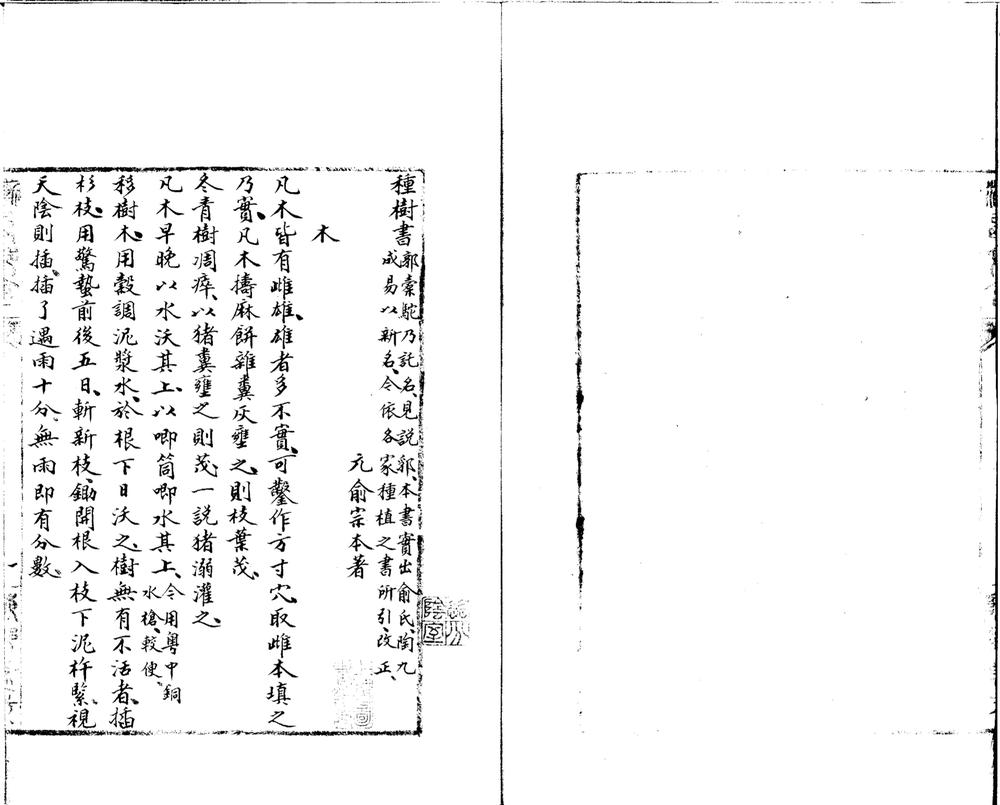 種樹書郭槖駝乃託名、見說郛、本書實出俞氏、陶九
成易以新名、今依各家種植之書所引、改正、
元俞宗本著
木
凡木皆有雌雄、雄者多不實、可鑿作方寸穴、取雌木填之
乃實、凡木擣麻餅雜糞灰壅之、則枝葉茂、
冬青樹凋瘁、以猪糞壅之則茂、一說猪溺灌之、
凡木早晚以水沃其上、以唧筒唧水其上、今用粤中銅
水槍、較便、
移樹木、用穀調泥漿水、於根下日沃之、樹無有不活者、插
杉枝、用驚蟄前後五日、斬新枝、鋤開根入枝下泥杵緊、視
天陰則插、插了遇雨十分、無雨即有分數、